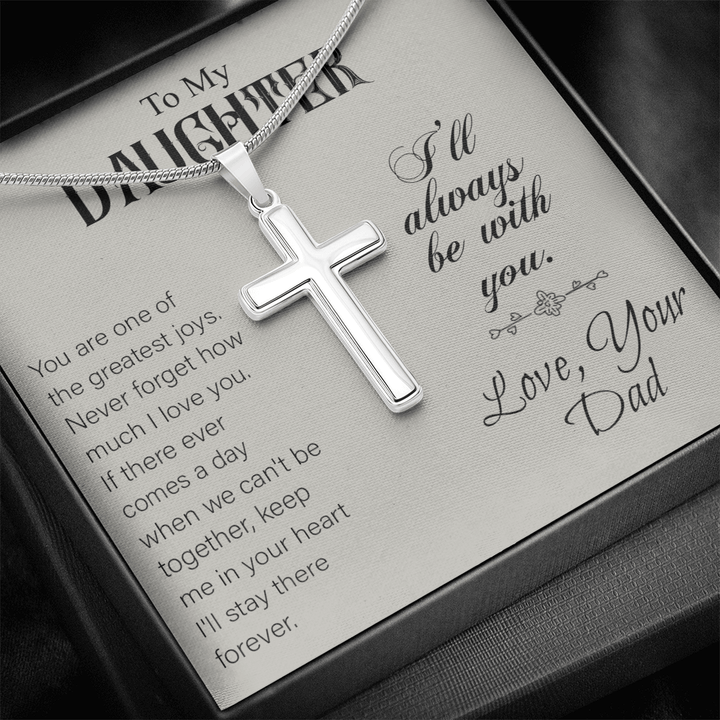 To My
DAUGHTER
You are one of
the greatest joys.
Never forget how
much I love you.
If there ever
comes a day
when we can't be
together, keep
me in your heart
I'll stay there
forever.
I'll
always
be with
you.
Love, Your
Dad